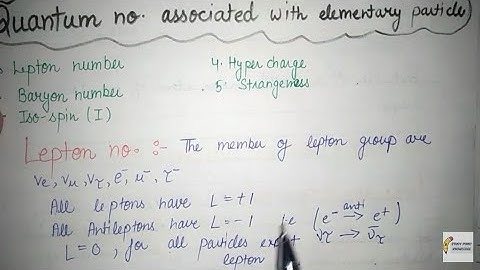 Quantum no. associated with elementary particle
Lepton number
4. Hyper charge
Baryon number
5. Strangeness
Iso-spin (I)
Lepton no. :- The member of lepton group are
νe, νμ, ντ, e⁻, μ⁻, τ⁻
All leptons have L = +1
All Antileptons have L = -1 i.e (e⁻ anti→ e⁺)
ντ → ν̄τ
L = 0, for all particles except
lepton